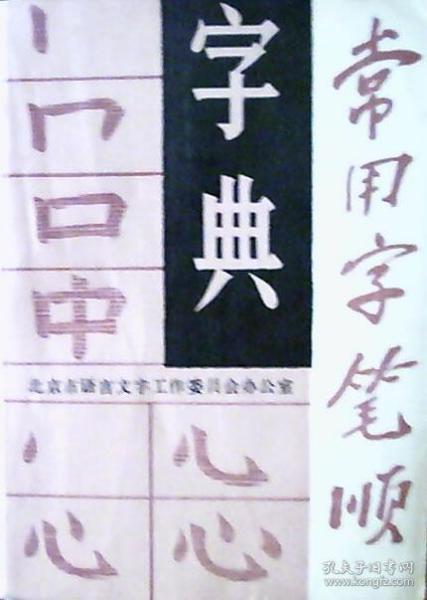 常用字笔顺
字典
丨
冂
口
中
北京市语言文字工作委员会办公室
心
心
孔夫子旧书网
www.kongfz.com